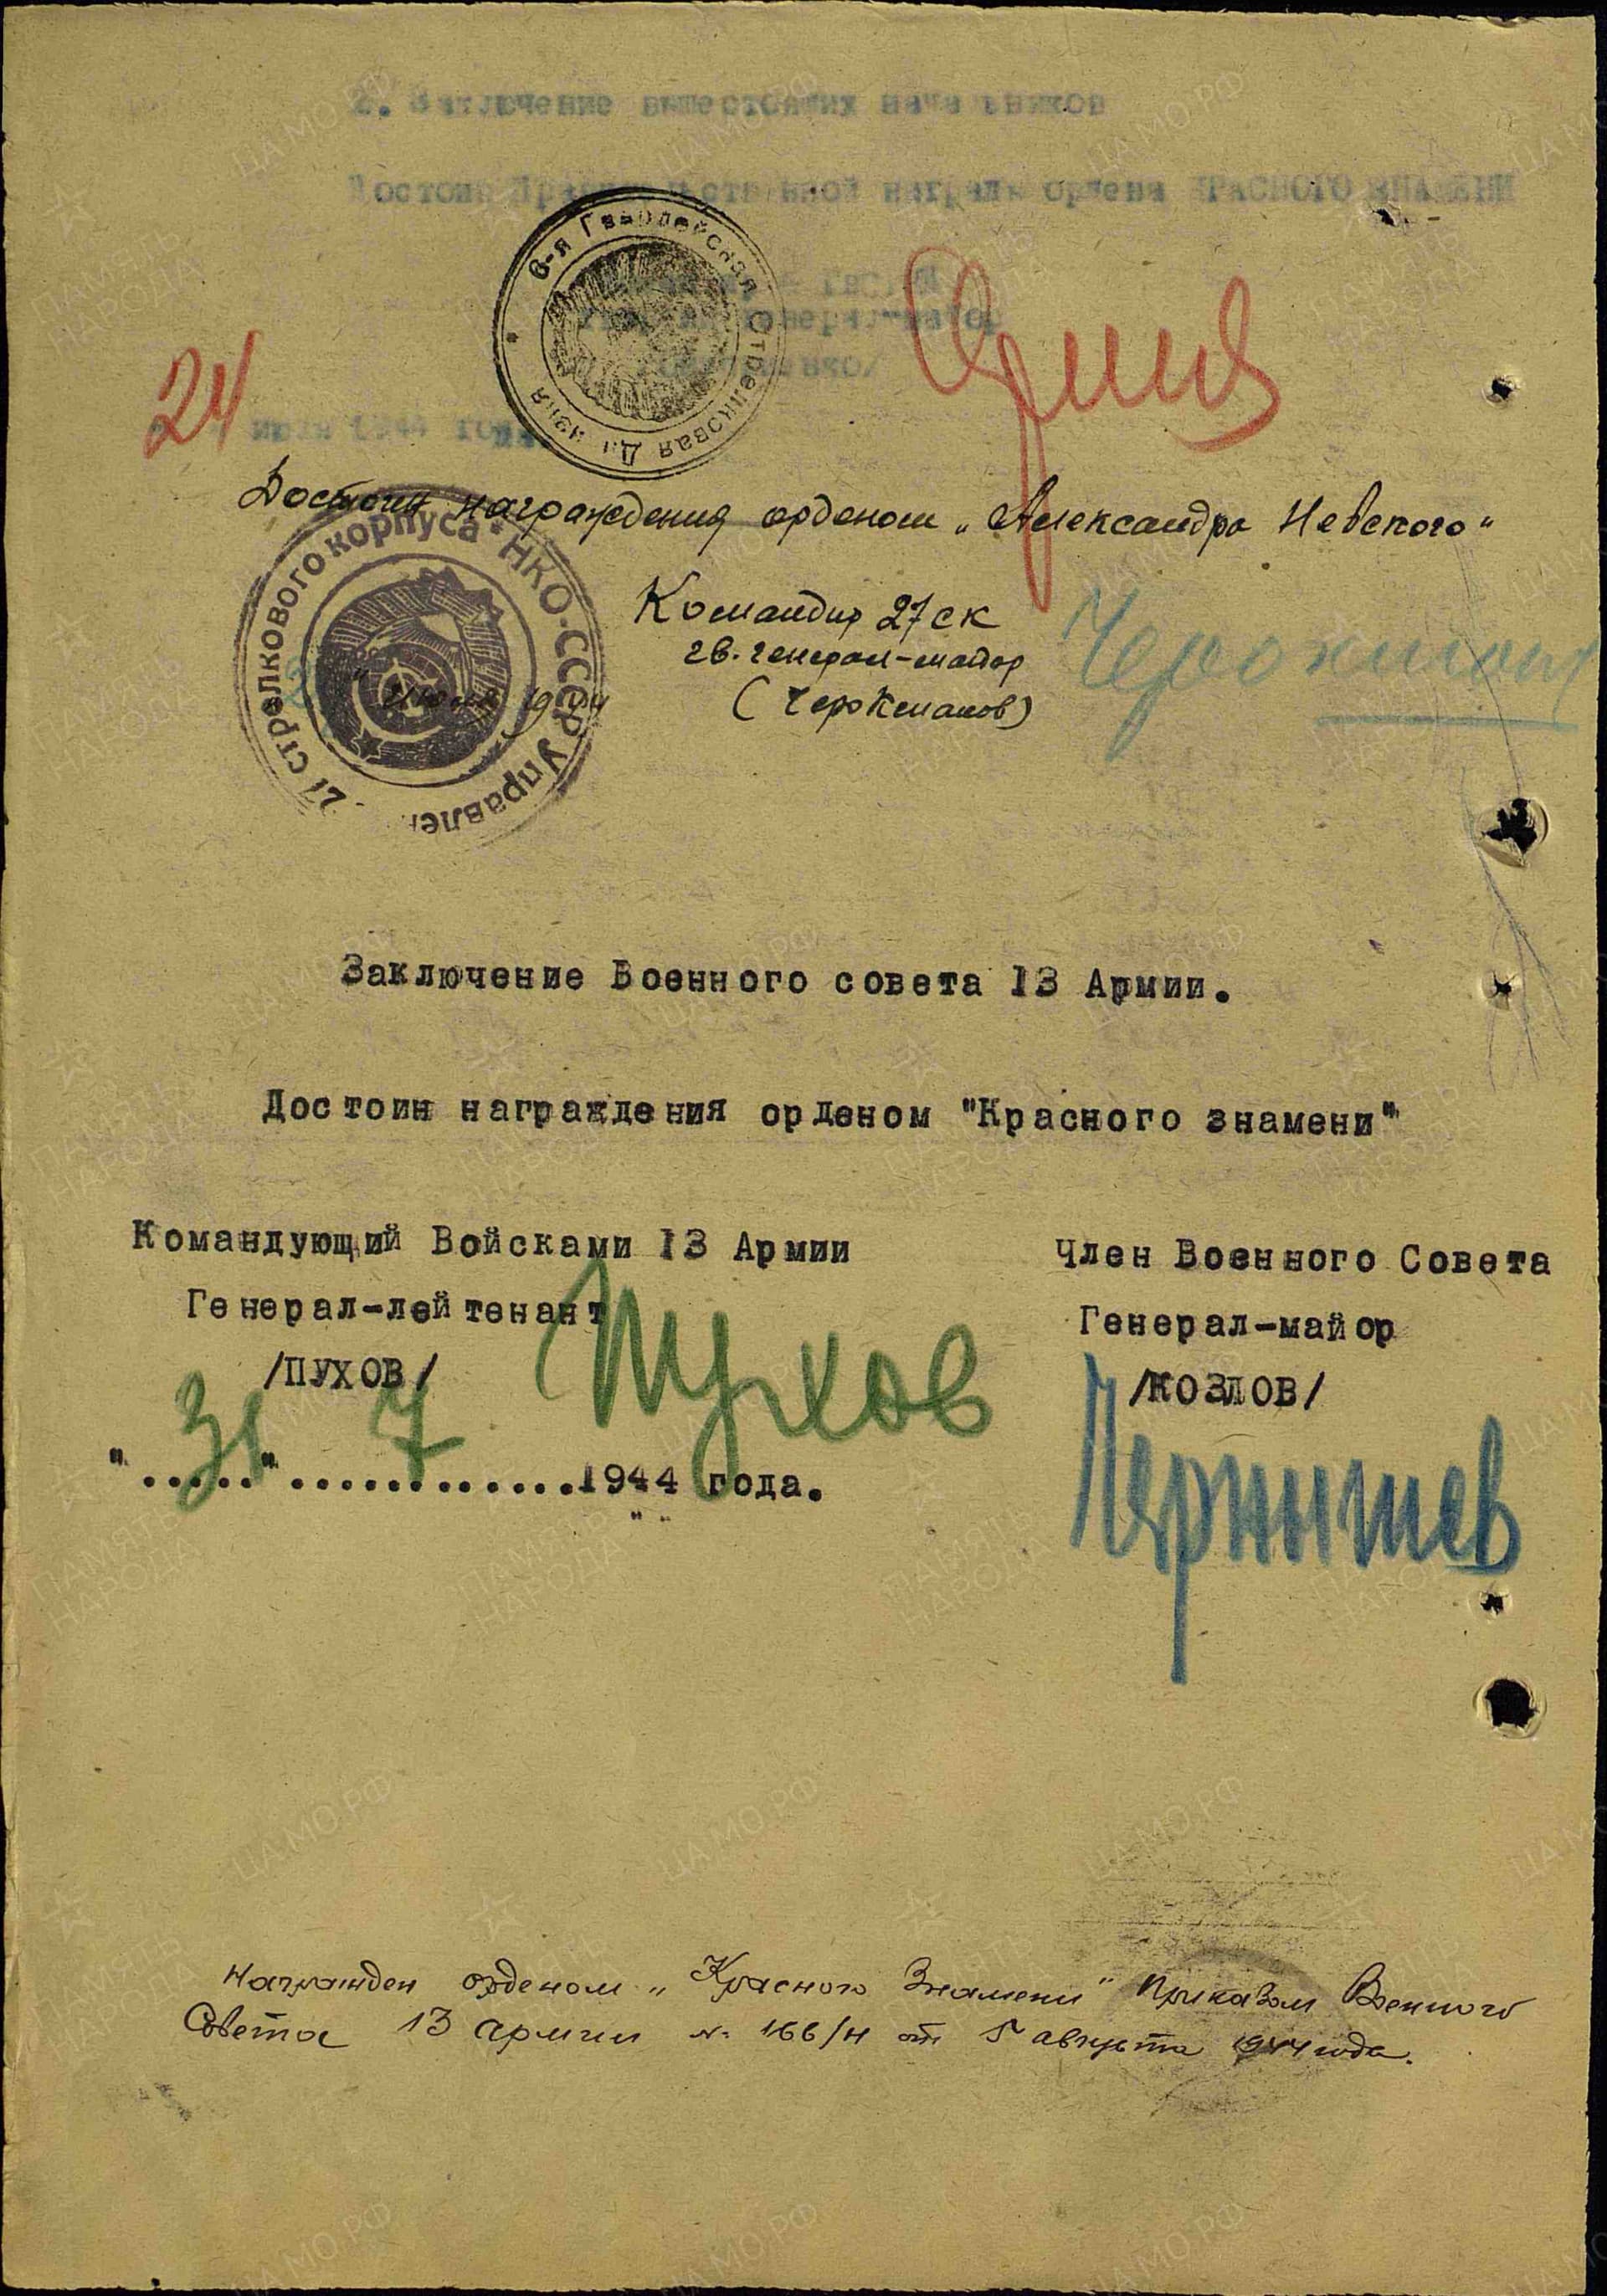 2. Заключение вышестоящих начальников
Достоин Правительственной награды ордена КРАСНОГО ЗНАМЕНИ
6-я Гвардейская Стрелковая Дивизия
генерал-майор
24 июля 1944 года
Достоин награждения орденом „Александра Невского"
27 стрелкового корпуса * НКО-СССР Управлен
Командир 27 ск
гв. генерал-майор
(Черокманов)
Заключение Военного совета 13 Армии.
Достоин награждения орденом "Красного знамени"
Командующий Войсками 13 Армии
Генерал-лейтенант
/ПУХОВ/
Пухов
"31" 7 1944 года.
Член Военного Совета
Генерал-майор
/КОЗЛОВ/
Награжден орденом „Красного Знамени" Приказом Военного
Совета 13 армии № 166/н от 5 августа 1944 года.
ПАМЯТЬ НАРОДА
ЦАМО.РФ